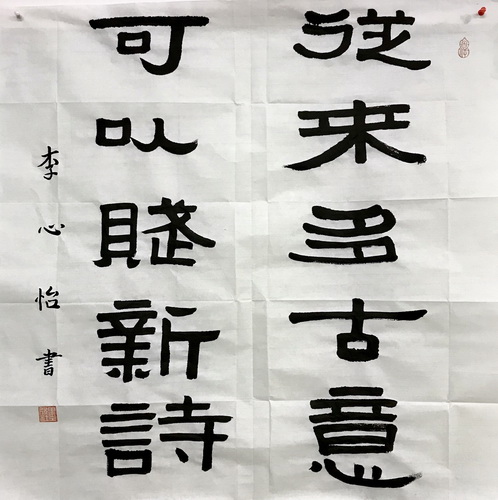 從来多古意
可以賦新詩
李心怡書